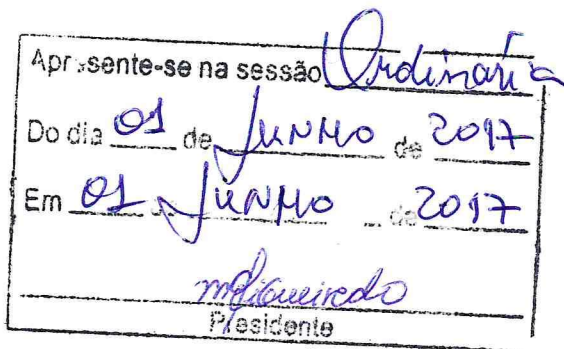 Apresente-se na sessão Ordinária
Do dia 01 de JUNHO de 2017
Em 01 JUNHO de 2017
Presidente